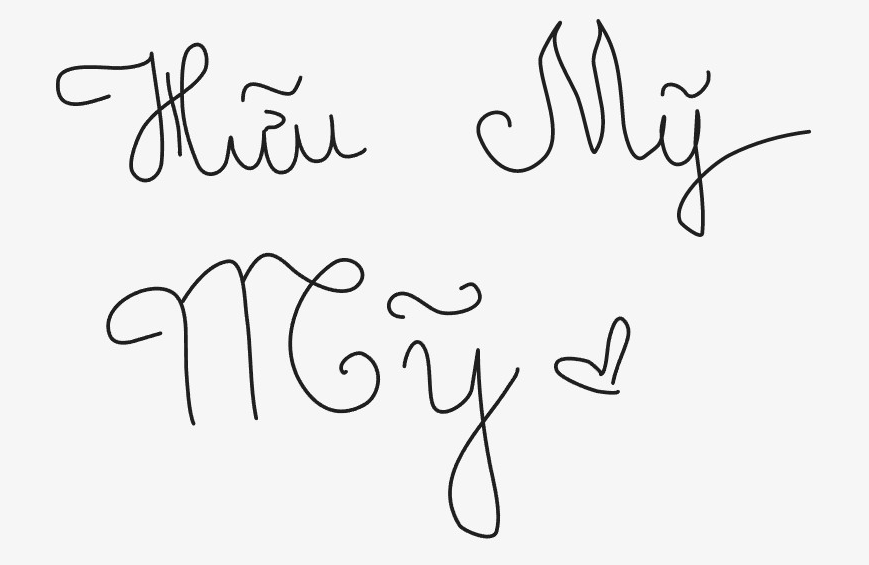 Hữu Mỹ
Mỹ